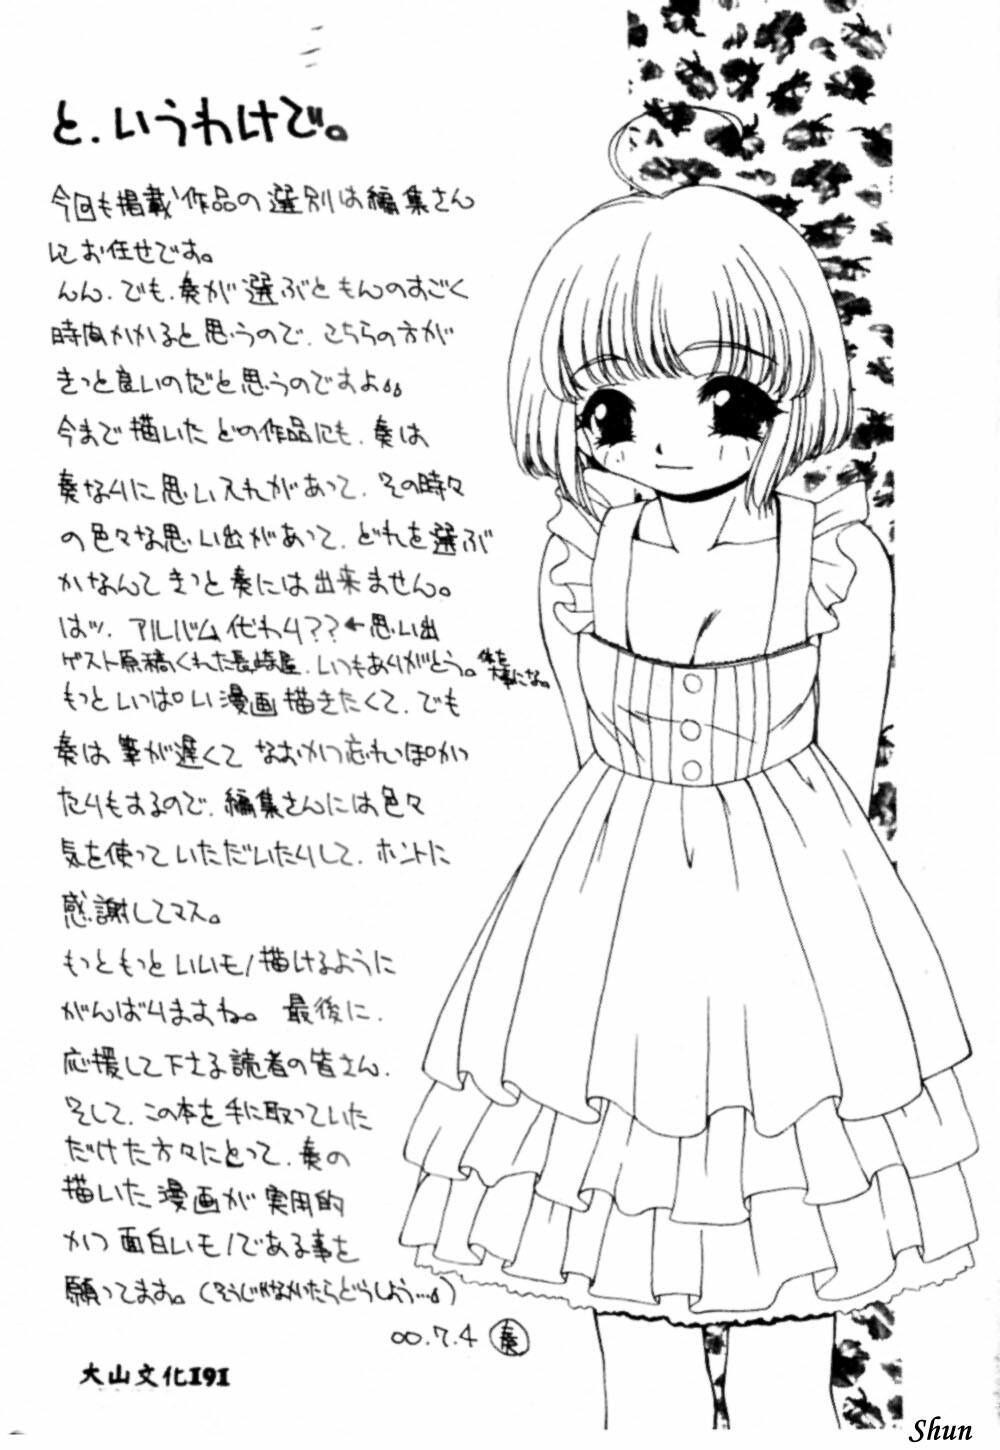 と、いうわけで。
今回も掲載作品の選別は編集さん
にお任せです。
んん、でも、奏が選ぶともんのすごく
時間かかると思うので、こちらの方が
きっと良いのだと思うのですよ。。
今まで描いたどの作品にも、奏は
奏なりに思い入れがあって、その時々
の色々な思い出があって、どれを選ぶ
かなんてきっと奏には出来ません。
はッ、アルバム代わり??←思い出
ゲスト原稿くれた長崎屋、いつもありがとう。体を
大事にな。
もっといっぱい漫画描きたくて、でも
奏は筆が遅くてなおかつ忘れいぽかつ
たりもするので、編集さんには色々
気を使っていただいたりして、ホントに
感謝してマス。
もっともっといいモノ描けるように
がんばりますね。 最後に、
応援して下さる読者の皆さん、
そして、この本を手に取っていた
だけた方々にとって、奏の
描いた漫画が実用的
かつ面白いモノである事を
願ってます。(そうじゃなかいたらどうしよう…。)
00.7.4 奏
大山文化191
Shun